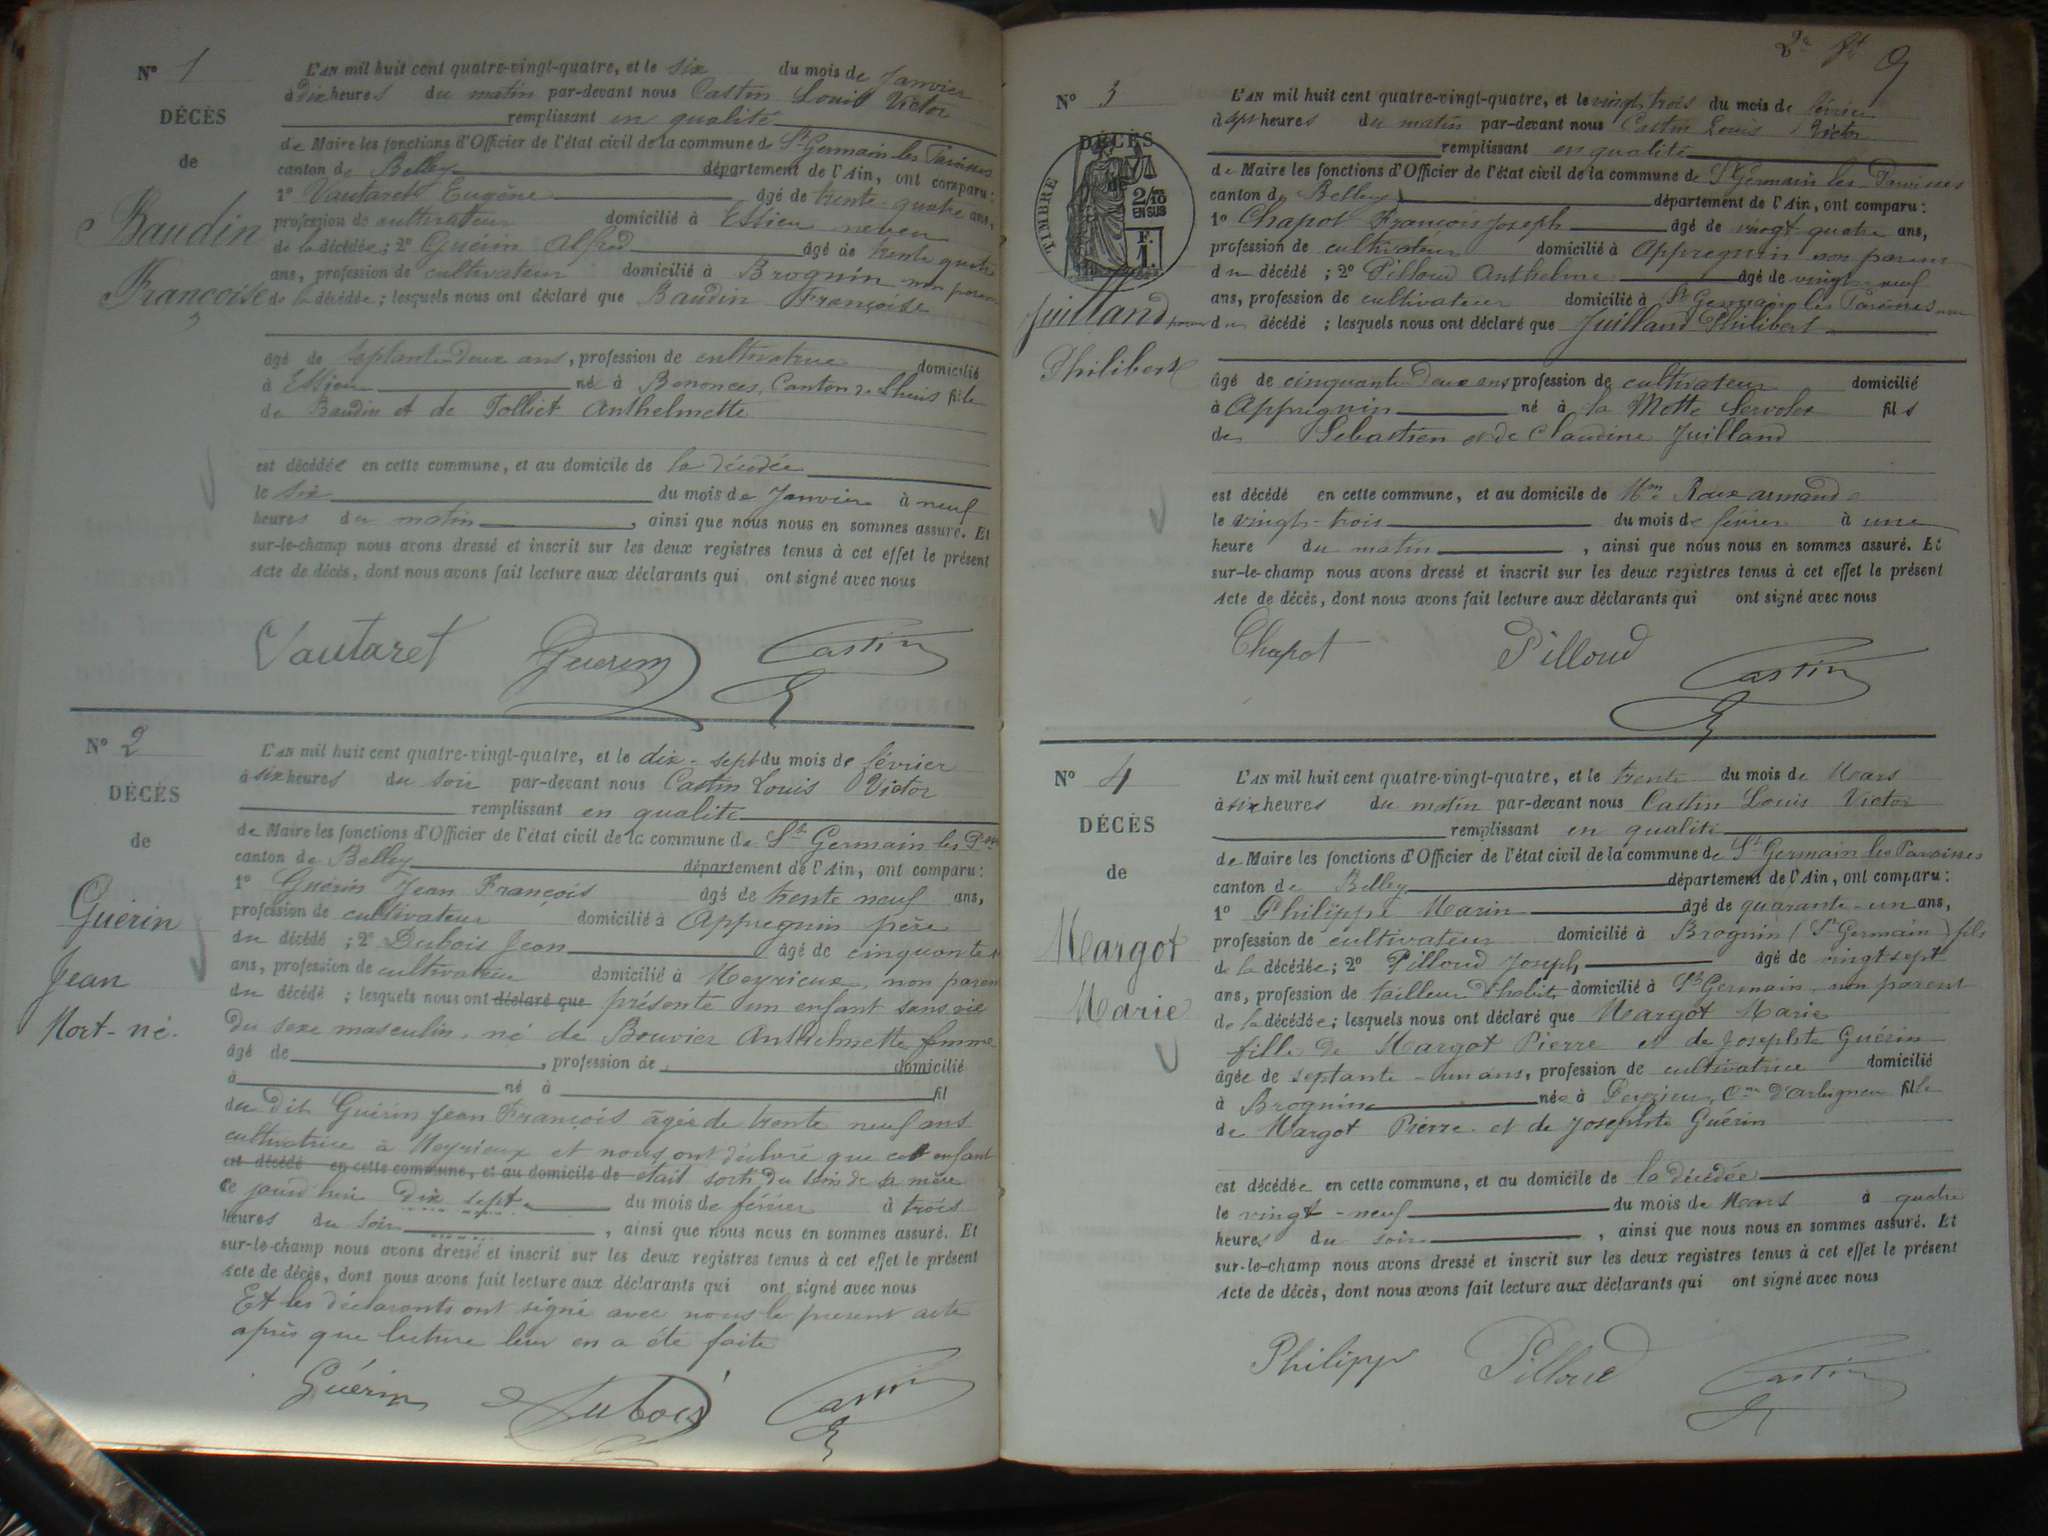 N° 1
DÉCÈS
de
Baudin
Françoise
L'AN mil huit cent quatre-vingt-quatre, et le six du mois de Janvier
à dix heures du matin par-devant nous Castin Louis Victor
remplissant en qualité
de Maire les fonctions d'Officier de l'état civil de la commune de St Germain les Paroisses
canton de Belley département de l'Ain, ont comparu :
1° Vautaret Eugène âgé de trente-quatre ans,
profession de cultivateur domicilié à Essieu neveu
de la décédée ; 2° Guérin Alfred âgé de trente quatre
ans, profession de cultivateur domicilié à Brognin non parent
de la décédée ; lesquels nous ont déclaré que Baudin Françoise
âgé de septante deux ans, profession de cultivatrice domicilié
à Essieu née à Benonces, Canton de Lhuis fille
de Baudin et de Tolliet Anthelmette
est décédée en cette commune, et au domicile de la décédée
le six du mois de Janvier à neuf
heures du matin, ainsi que nous nous en sommes assuré. Et
sur-le-champ nous avons dressé et inscrit sur les deux registres tenus à cet effet le présent
Acte de décès, dont nous avons fait lecture aux déclarants qui ont signé avec nous
Vautaret Guerin Castin
N° 2
DÉCÈS
de
Guérin
Jean
Mort-né.
L'AN mil huit cent quatre-vingt-quatre, et le dix-sept du mois de février
à six heures du soir par-devant nous Castin Louis Victor
remplissant en qualité
de Maire les fonctions d'Officier de l'état civil de la commune de St Germain les Pses
canton de Belley département de l'Ain, ont comparu :
1° Guérin Jean François âgé de trente neuf ans,
profession de cultivateur domicilié à Appregnin père
du décédé ; 2° Dubois Jean âgé de cinquante
ans, profession de cultivateur domicilié à Meyrieux, non parent
du décédé ; lesquels nous ont déclaré que présenté un enfant sans vie
du sexe masculin, né de Bouvier Anthelmette femme
âgé de , profession de domicilié
à né à fil
du dit Guérin Jean François âgée de trente neuf ans
cultivatrice à Meyrieux et nous ont déclaré que cet enfant
est décédé en cette commune, et au domicile de était sorti du sein de sa mère
ce jourd'hui dix sept du mois de février à trois
heures du soir, ainsi que nous nous en sommes assuré. Et
sur-le-champ nous avons dressé et inscrit sur les deux registres tenus à cet effet le présent
Acte de décès, dont nous avons fait lecture aux déclarants qui ont signé avec nous
Et les déclarants ont signé avec nous le présent acte
après que lecture leur en a été faite
Guérin Dubois Castin
N° 3
DÉCÈS
TIMBRE
2/10
EN SUS
F.
1.
Juilland
Philibert
L'AN mil huit cent quatre-vingt-quatre, et le vingt trois du mois de février
à sept heures du matin par-devant nous Castin Louis Victor
remplissant en qualité
de Maire les fonctions d'Officier de l'état civil de la commune de St Germain les Paroisses
canton de Belley département de l'Ain, ont comparu :
1° Chapot François Joseph âgé de vingt quatre ans,
profession de cultivateur domicilié à Appregnin non parent
du décédé ; 2° Pilloud Anthelme âgé de vingt-neuf
ans, profession de cultivateur domicilié à St Germain les Paroisses non
parent du décédé ; lesquels nous ont déclaré que Juilland Philibert
âgé de cinquante deux ans profession de cultivateur domicilié
à Appregnin né à la Motte Servolex fils
de Sébastien et de Claudine Juilland
est décédé en cette commune, et au domicile de Mme Roux Armande
le vingt-trois du mois de février à une
heure du matin, ainsi que nous nous en sommes assuré. Et
sur-le-champ nous avons dressé et inscrit sur les deux registres tenus à cet effet le présent
Acte de décès, dont nous avons fait lecture aux déclarants qui ont signé avec nous
Chapot Pilloud Castin
N° 4
DÉCÈS
de
Margot
Marie
L'AN mil huit cent quatre-vingt-quatre, et le trente du mois de Mars
à six heures du matin par-devant nous Castin Louis Victor
remplissant en qualité
de Maire les fonctions d'Officier de l'état civil de la commune de St Germain les Paroisses
canton de Belley département de l'Ain, ont comparu :
1° Philippe Marin âgé de quarante-un ans,
profession de cultivateur domicilié à Brognin (St Germain) fils
de la décédée ; 2° Pilloud Joseph âgé de vingt sept
ans, profession de tailleur d'habits domicilié à St Germain, non parent
de la décédée ; lesquels nous ont déclaré que Margot Marie
fille de Margot Pierre et de Josephte Guérin
âgée de septante-un ans, profession de cultivatrice domicilié
à Brognin née à Peyzieu, Cne d'Arbignieu fille
de Margot Pierre et de Josephte Guérin
est décédée en cette commune, et au domicile de la décédée
le vingt-neuf du mois de Mars à quatre
heures du soir, ainsi que nous nous en sommes assuré. Et
sur-le-champ nous avons dressé et inscrit sur les deux registres tenus à cet effet le présent
Acte de décès, dont nous avons fait lecture aux déclarants qui ont signé avec nous
Philippe Pilloud Castin